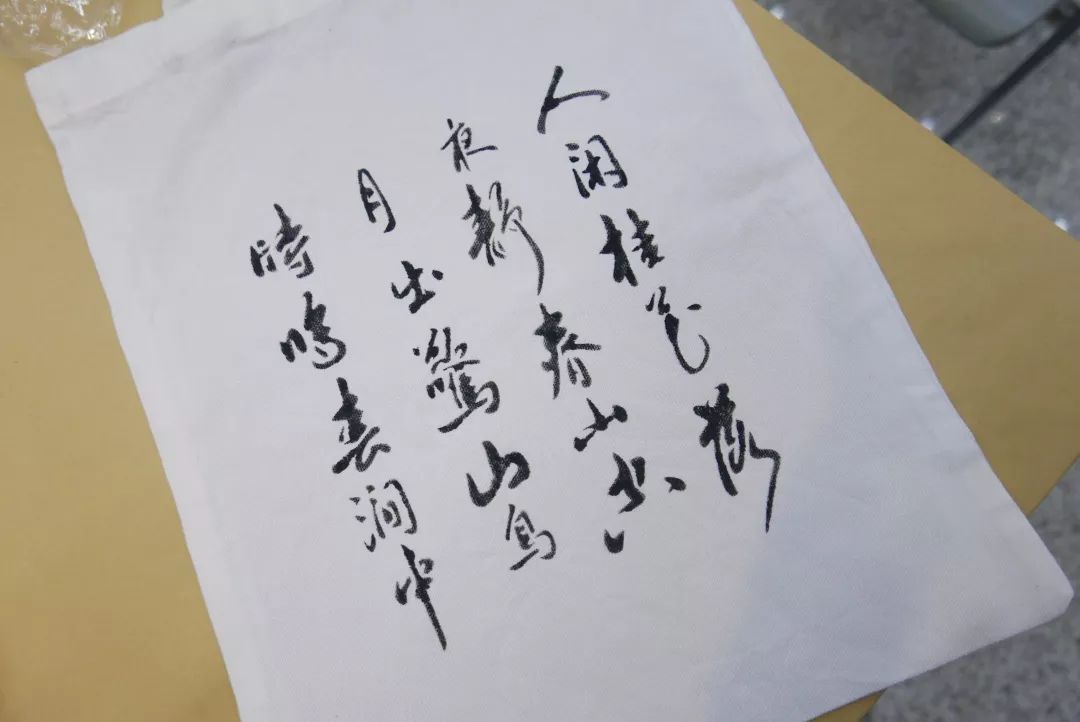 人闲桂花落
夜静春山空
月出驚山鳥
時鳴春澗中